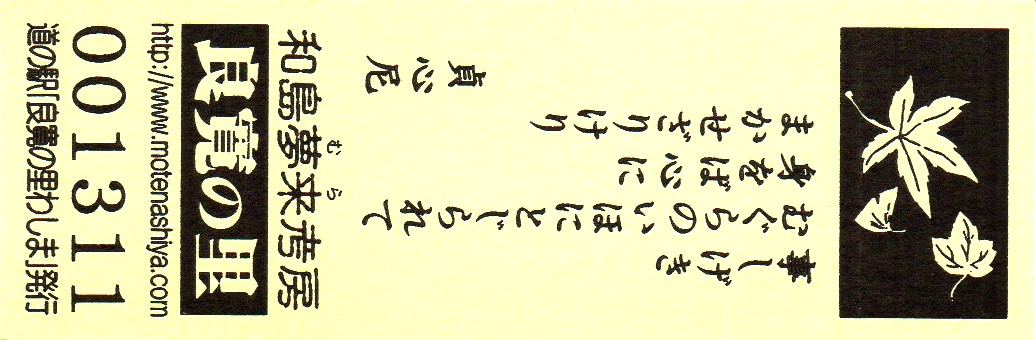 事しげき
むぐらのいほにとじられて
身をば心に
まかせざりけり
貞心尼
むら
和島夢来考房
良寛の里
http://www.motenashiya.com
001311
道の駅「良寛の里わしま」発行